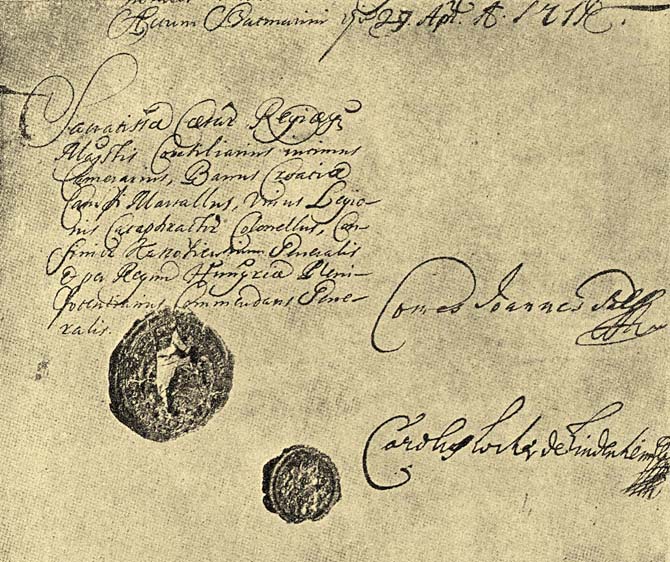 Actum Zatmarini die 29. Apr. A. 1711.
Sacratissae Caesae Regiaeq
Majstis Consiliarius intimus
Camerarius, Banus Croatiae
Campi Marsallus, Unius Legio-
nis Cataphractae Colonellus, Con-
finior Generalis
& per Regnu Hungriae Pleni-
potentiarius Commendans Gene-
ralis.
Comes Joannes Palffy
Carolus Locher de Lindenheim